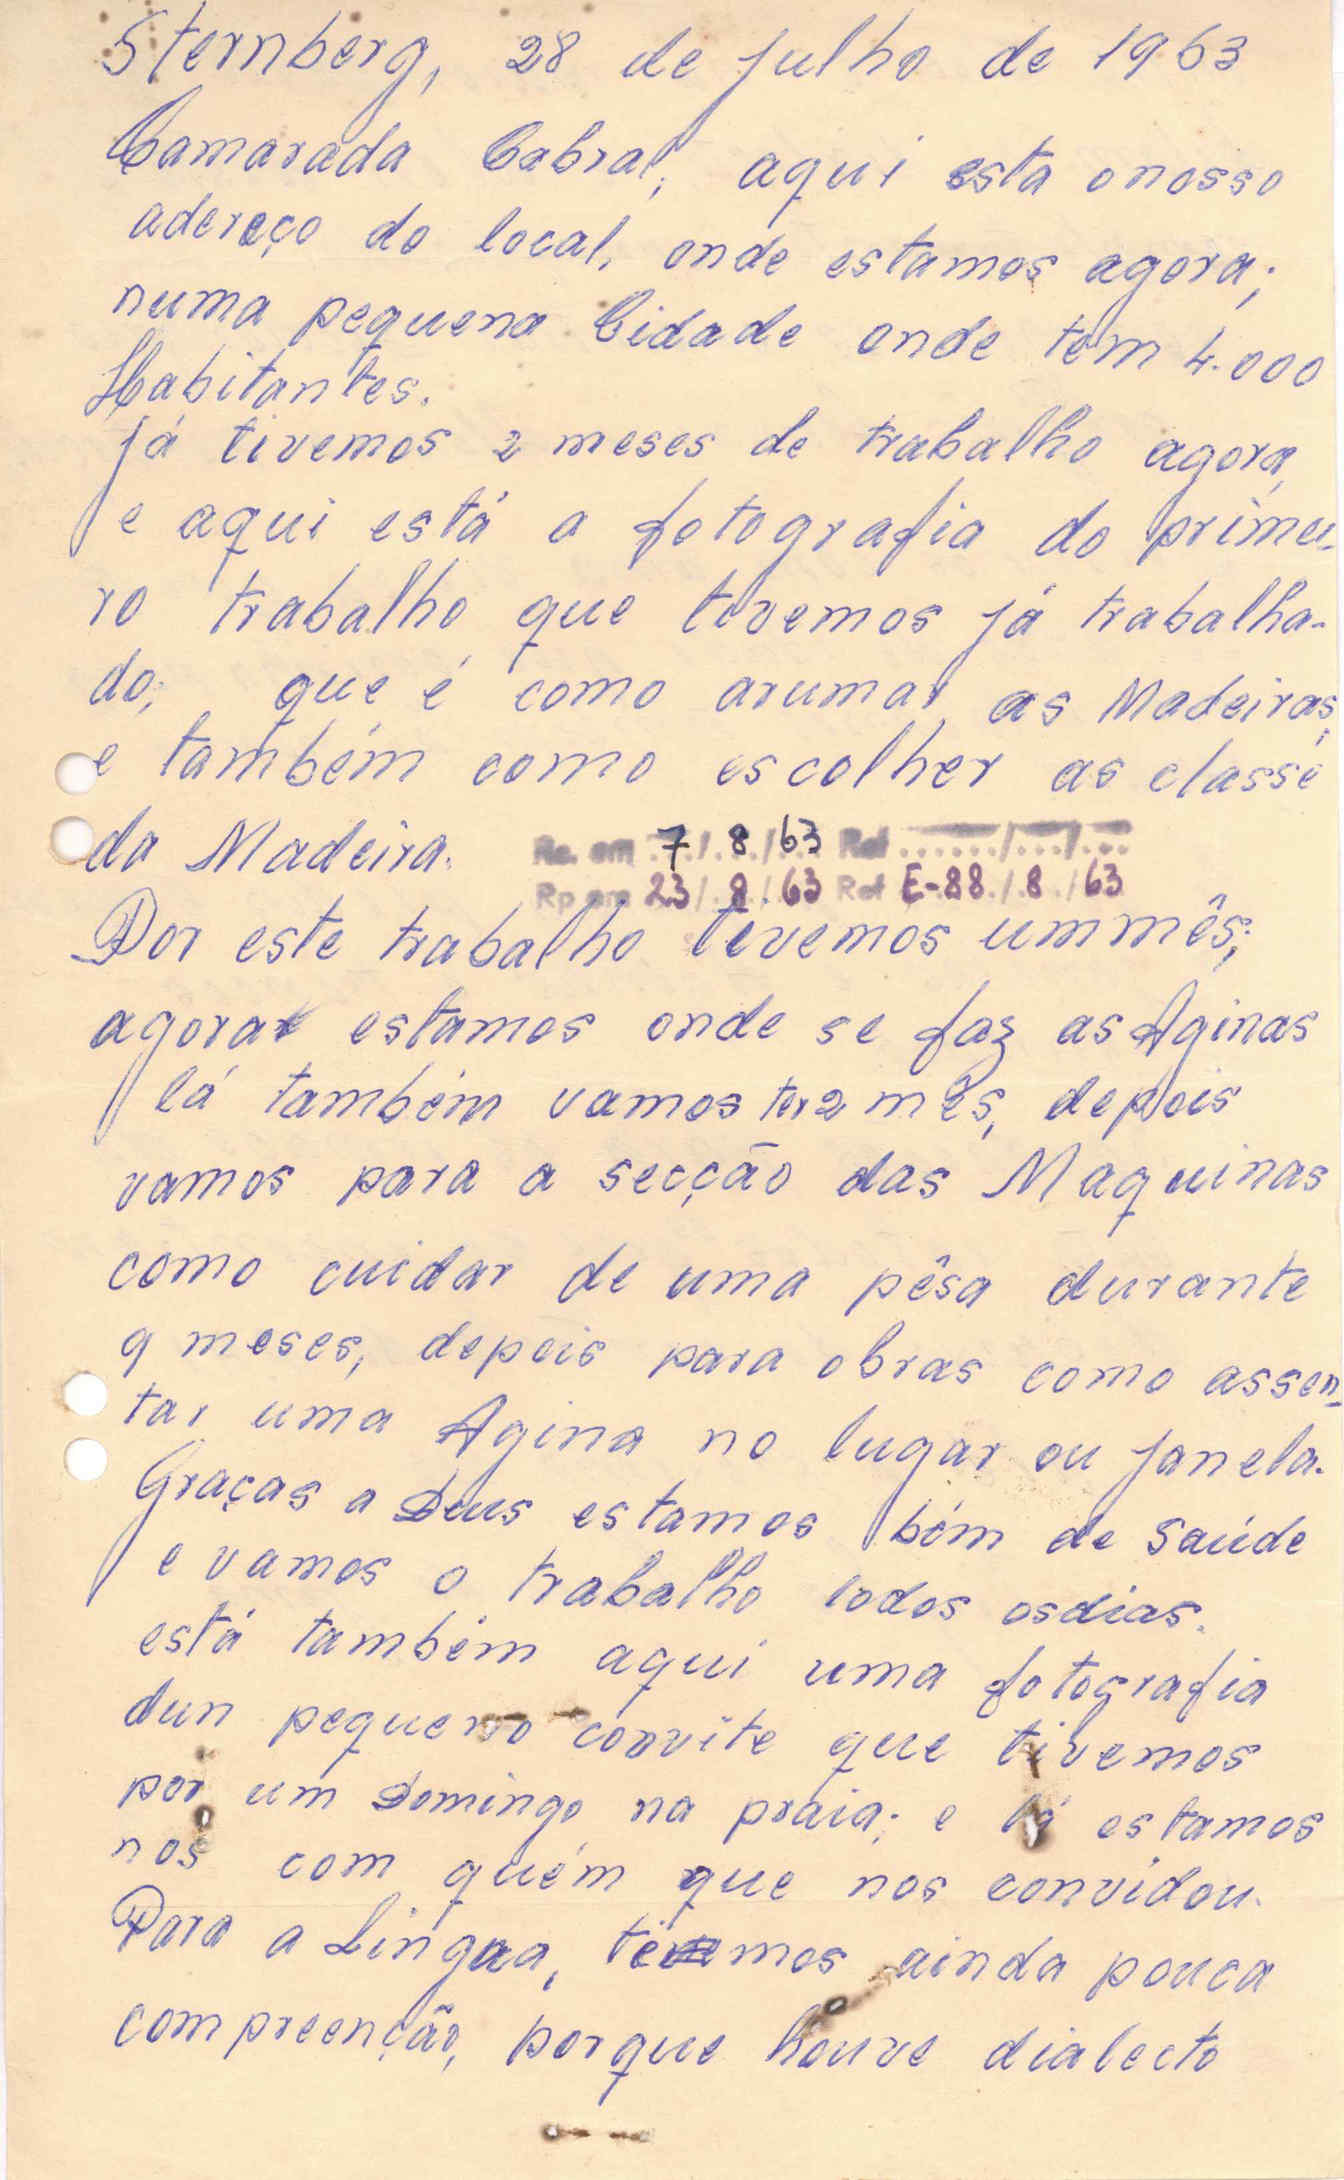 Sternberg, 28 de Julho de 1963
Camarada Cabral, aqui esta onosso
adereço do local, onde estamos agora;
numa pequena Cidade onde tem 4.000
Habitantes.
Já tivemos 2 meses de trabalho agora,
e aqui está a fotografia do primei-
ro trabalho que tivemos já trabalha-
do; que é como arumar as Madeiras,
e também como escolher as classe
da Madeira.
Re. em 7/8/63 Ref ....../.../...
Rp em 23/8/63 Ref E-88./8./63
Por este trabalho tivemos ummês;
agora estamos onde se faz as Aginas
lá também vamos ter2 mês, depois
vamos para a secção das Maquinas
como cuidar de uma pêsa durante
9 meses, depois para obras como assen-
tar uma Agina no lugar ou Janela.
Graças a Deus estamos bém de Saúde
e vamos o trabalho todos osdias.
está também aqui uma fotografia
dun pequeno convite que tivemos
por um Domingo na praia; e lá estamos
nos com quém que nos convidou.
Para a Lingua, temos ainda pouca
compreenção, porque houve dialecto